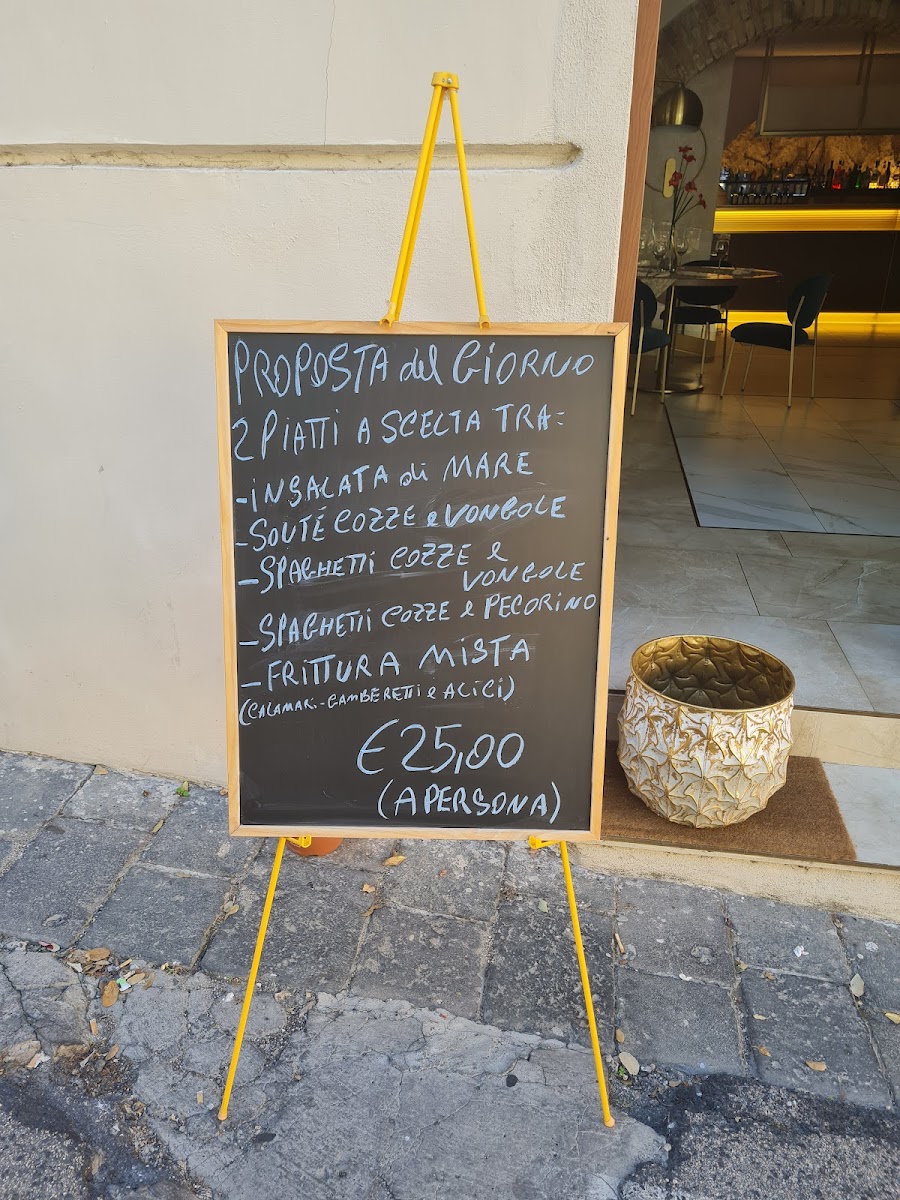 PROPOSTA del GIORNO
2 PIATTI A SCELTA TRA:
-INSALATA di MARE
-SOUTÉ COZZE e VONGOLE
-SPAGHETTI COZZE e
VONGOLE
-SPAGHETTI COZZE e PECORINO
-FRITTURA MISTA
(CALAMARI-GAMBERETTI e ALICI)
€25,00
(A PERSONA)